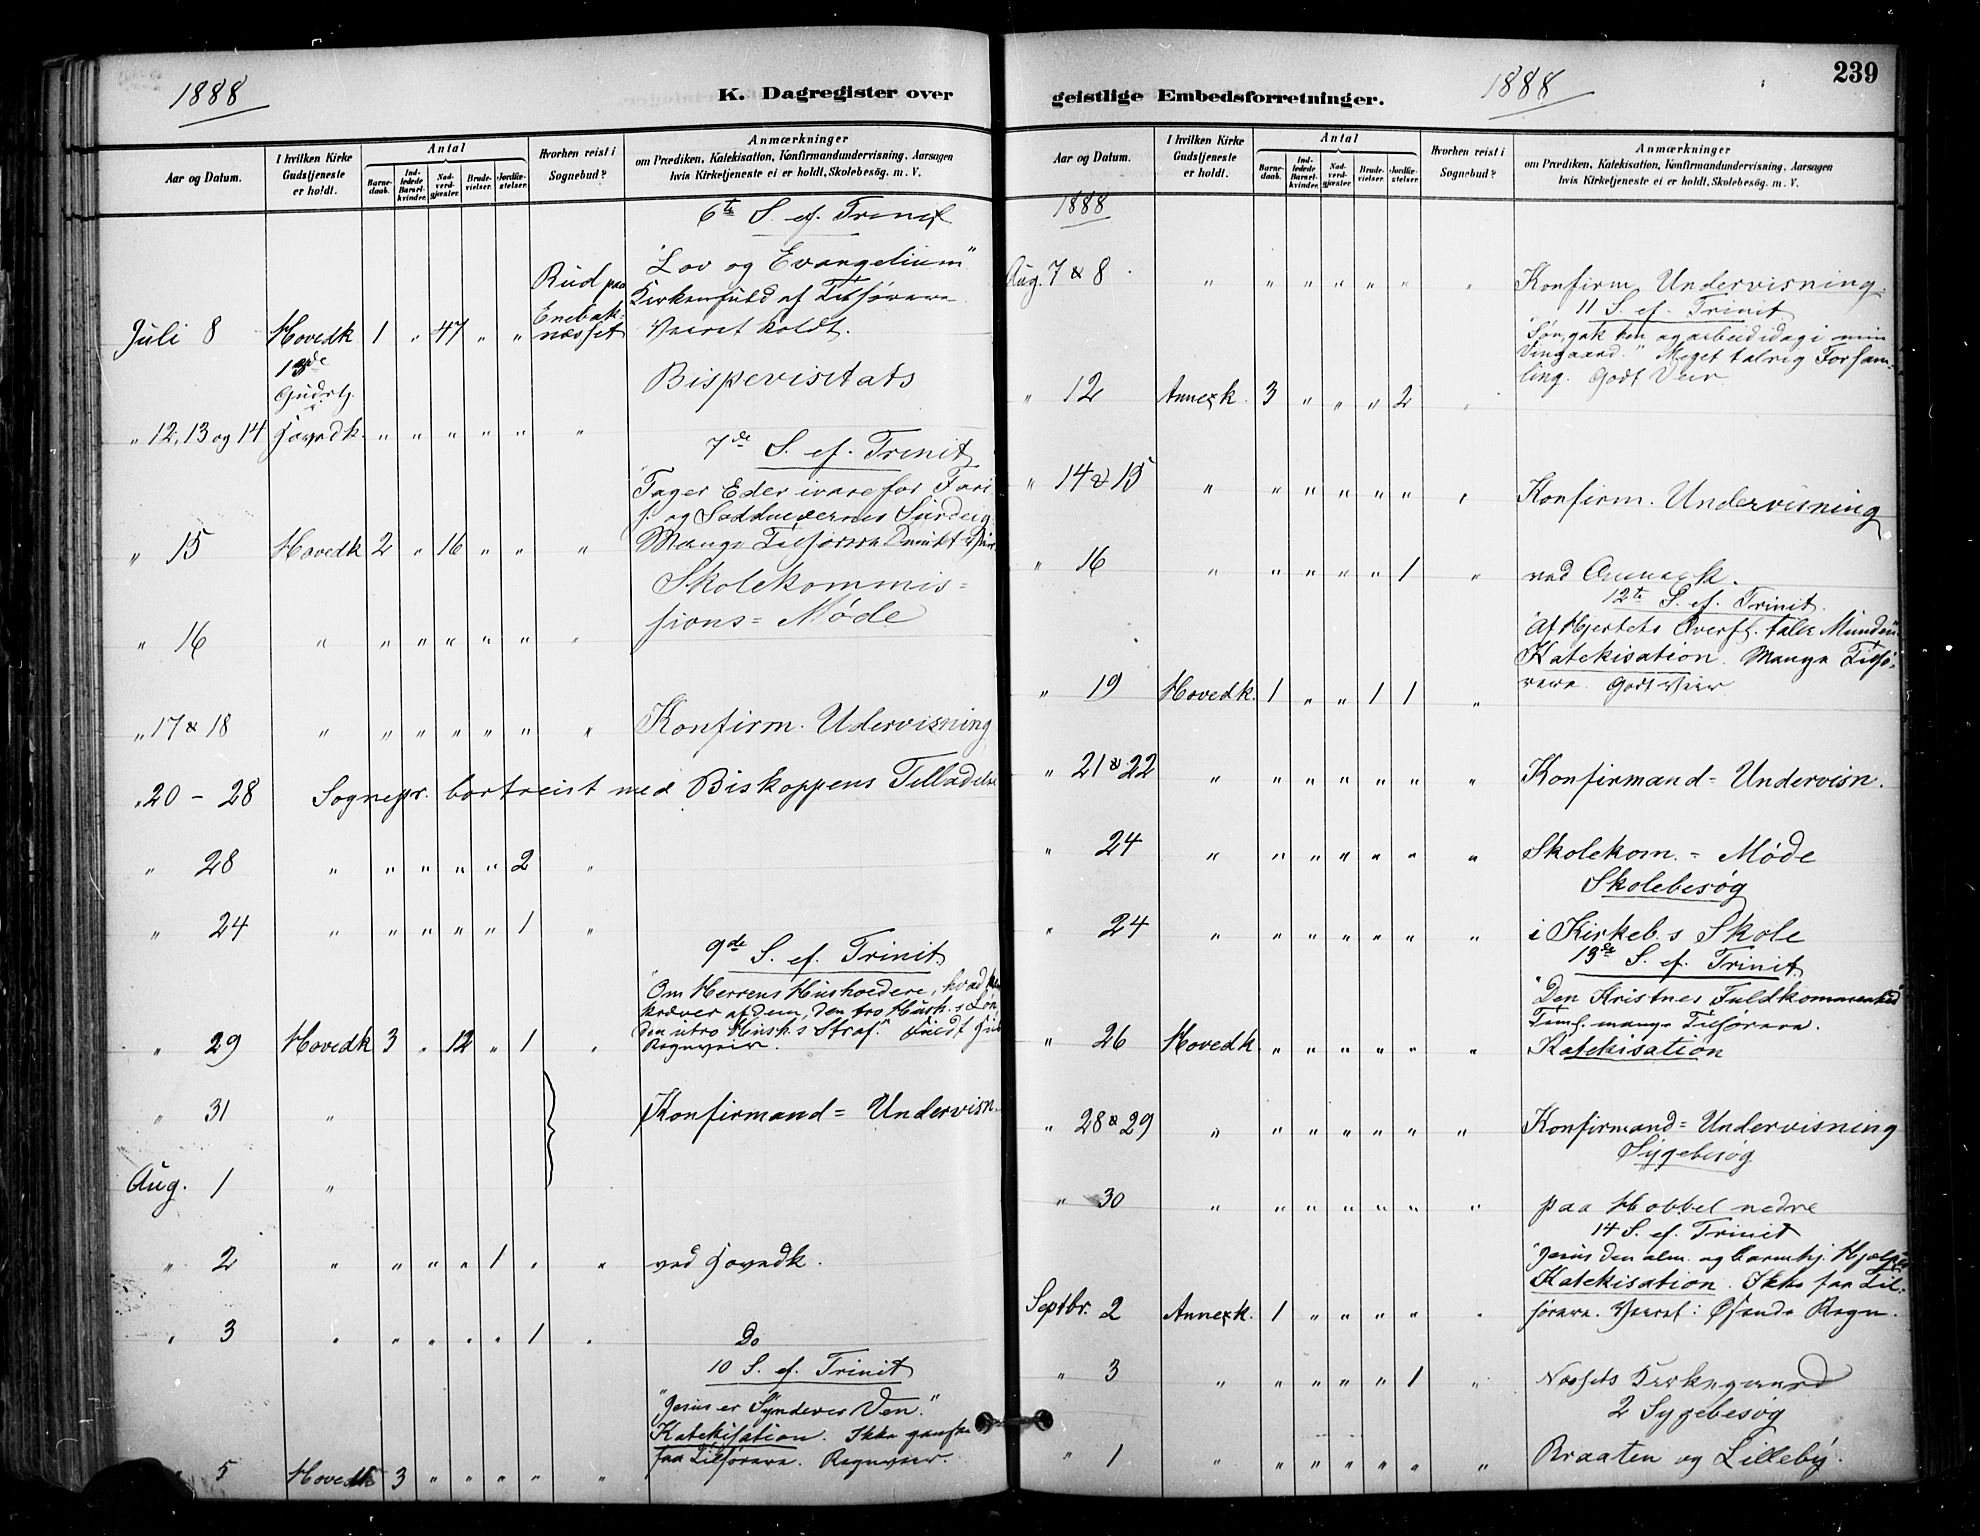 1888
K. Dagregister over
Aar og Datum.
I hvilken Kirke Gudstjeneste er holdt.
Antal
Barnedaab.
Indledede Barselkvinder.
Nadverdgjæster.
Brudevielser.
Jordfæstelser.
Hvorhen reist i Sognebud?
Anmærkninger
om Prædiken, Katekisation, Konfirmandundervisning, Aarsagen
hvis Kirketjeneste ei er holdt, Skolebesøg. m. V.
6te S. ef. Trinit
"Lov og Evangelium"
Rud paa
Enebak-
næsset
Kirken fuld af Tilhørere
Juli 8 Hovedk 1 " 47 " " Veiret koldt.
Gudstj.
Bispevisitats
" 12, 13 og 14 Hovedk. " " " " " "
7de S. ef. Trinit
Tager Eder ivare for Fari
s. og Sadducæernes Surdeig
" 15 Hovedk 2 " 16 " " " Mange Tilhørere
Skolekommis=
" 16 " " " " " " " sions= Møde
" 17 & 18 " " " " " " " Konfirm. Udervisning
" 20 - 28 Sognepr. bortreist med Biskoppens Tilladelse
" 28 " " " " " 2 "
" 24 " " " " " 1 "
9de S. ef. Trinit.
"Om Herrens Husholdere, hvad
kræver af dem, den tro Hush. s Løn,
den utro Hush.s Straf." Fuldt Hus
" 29 Hovedk 3 " 12 " 1 " Regnveir.
" 31 " Konfirmand= Undervisn.
Aug. 1 "
" 2 " " " " 1 " " ved Hovedk.
" 3 " " " " " 1 " Do
10 S. ef. Trinit
"Jesus er Synderes Ven."
Katekisation. Ikke ganske
faa Tilhørere. Regnveir.
" 5 Hovedk 3 " " " " "
239
1888
geistlige Embedsforretninger.
Aar og Datum.
I hvilken Kirke Gudstjeneste er holdt.
Antal
Barnedaab.
Indledede Barselkvinder.
Nadverdgjæster.
Brudevielser.
Jordfæstelser.
Hvorhen reist i Sognebud?
Anmærkninger
om Prædiken, Katekisation, Konfirmandundervisning, Aarsagen
hvis Kirketjeneste ei er holdt, Skolebesøg. m. V.
1888
Aug. 7 & 8 " " " " " " " Konfirm. Undervisning.
11 S. ef. Trinit
"Søn, gak hen og arbeid idag i min
Vingaard." Meget talrig Forsam-
ling. Godt Veir
" 12 Annexk. 3 " " " 2 "
" 14 & 15 " " " " " " " Konfirm. Undervisning
" 16 " " " " " 1 " ved Annexk.
12te S. ef. Trinit.
"Af Hjertets Overfl. taler Munden"
Katekisation. Mange Tilhø-
" 19 Hovedk. 1 " " 1 1 " rere. Godt Veir
" 21 & 22 " " " " " " " Konfirmand= Undervisn.
" 24 " " " " " " " Skolekom. = Møde
Skolebesøg
" 24 " " " " " " " i Kirkeb.s Skole
13de S. ef. Trinit.
"Den Kristnes Fuldkommenhed"
Teml. mange Tilhørere.
" 26 Hovedk. " " " " " " Katekisation
" 28 & 29 " " " " " " " Konfirmand= Undervisning
Sygebesøg
" 30 " " " " " " " paa Hobbel nedre
14 S. ef. Trinit
"Jesus den alm. og barmhj. Hjælper
Katekisation. Ikke faa Til-
Septbr. 2 Annexk. 1 " " " " hørere. Veiret: Øsende Regn.
" 3 " " " " " 1 " Næssets Kirkegaard
2 Sygebesøg
" 1 " " " " " " " Braaten og Lilleby.